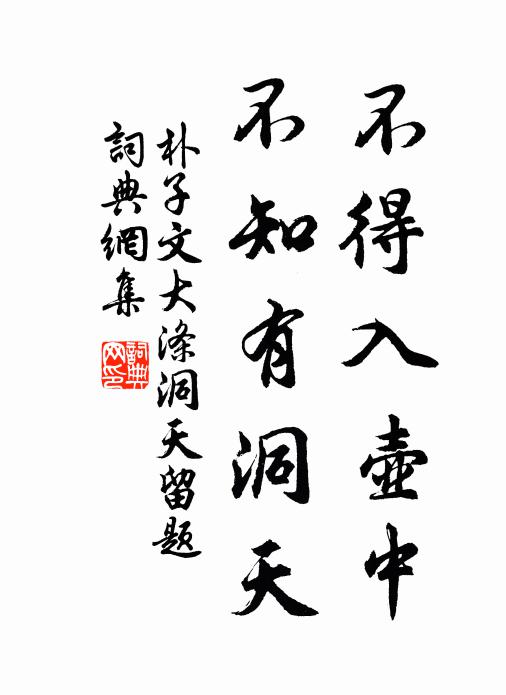 不得入壺中
不知有洞天
朴子文大滌洞天留题
詞典網集
詞典網印